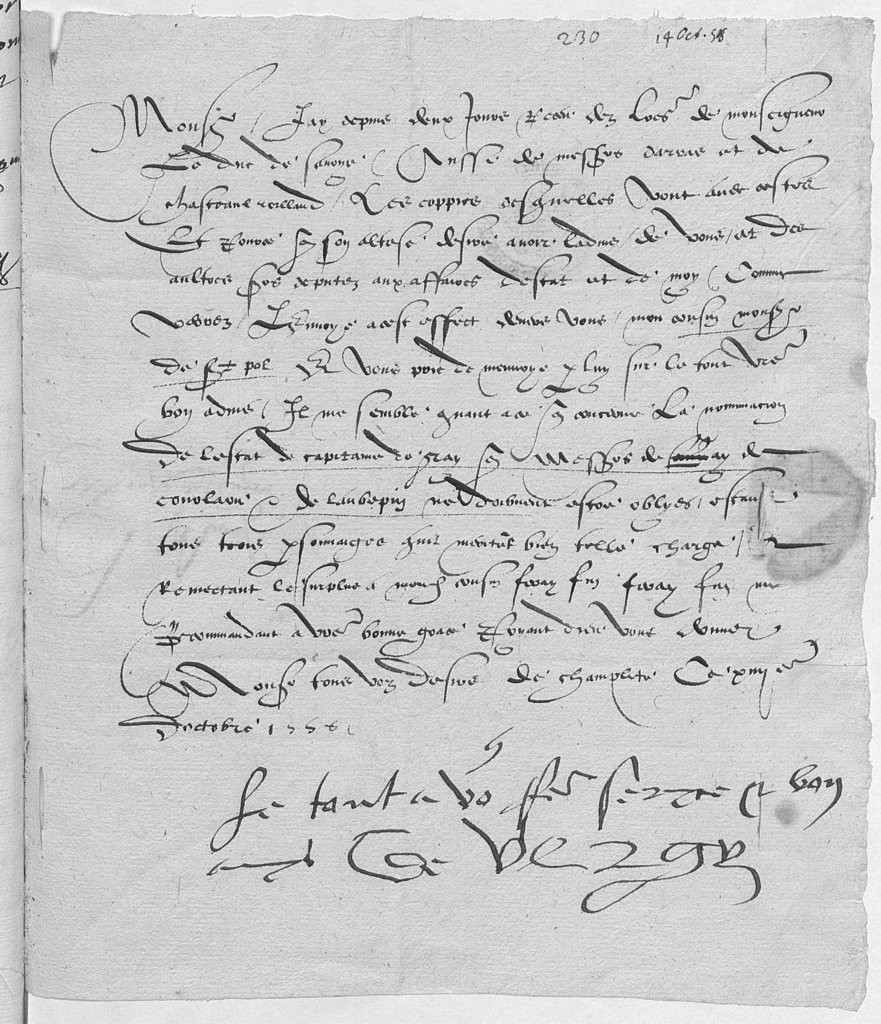 230 14 Oct. 58
Monsr / Jay depuis deux jours Receu des lres de monseigneur
Le duc de savoye / Aussi de messrs darras et de
chasteaul roillaud / Les coppies desquelles vont avec cestes
Et pource que son alteze desire avoir ladvis / de vous / et des
aultres srs deputez aux affaires destat et de moy / Comme
verrez / Jenvoye a cest effect devers vous / mon cousin monsr
de st pol Et vous prie de menvoye p luy sur le tout vre
bon advis / Il me semble quant a ce que concerne La nomination
De lestat de capitaine de gray que messrs de ay de
conolaoue de laubepin ne doibvent estre oblyez / estans
tous trois psonnaiges qui meritent bien telle charge /
Remectant le surplus a mond cousin me
Recommandant a vre bonne grace Priant dieu vous donner
Monsr tous voz desirs De champlite Ce xiiij e
Doctobre 1558 /
Le tout a vo frere serviteur et bon
amy C de Vergy